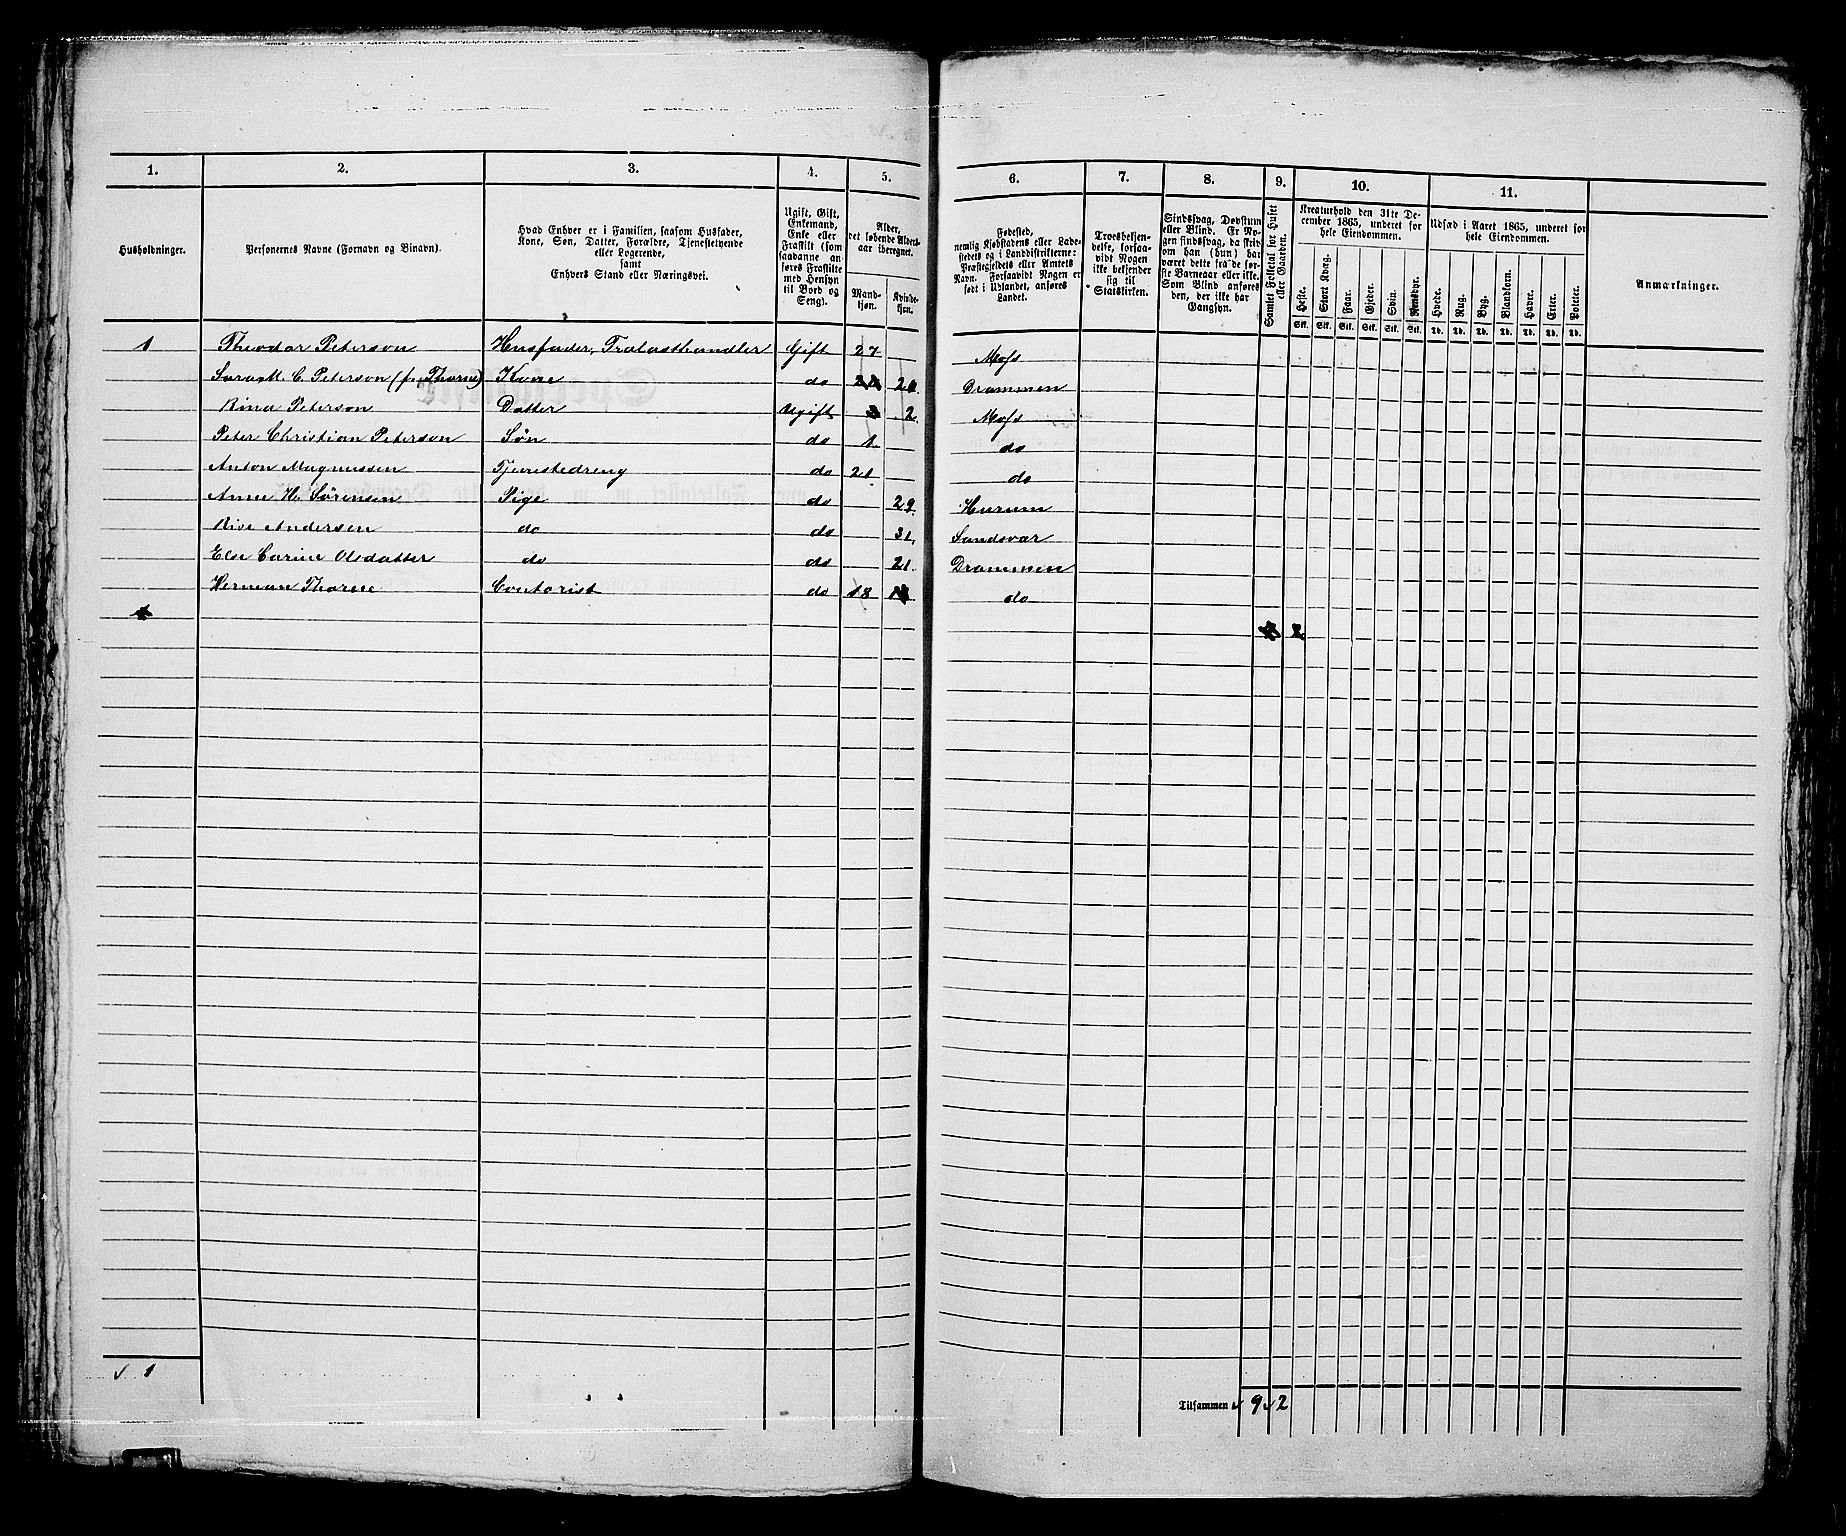 1. 2. 3. 4. 5. 6. 7. 8. 9. 10. 11.
Husholdninger.
Personernes Navne (Fornavn og Binavn).
Hvad Enhver er i Familien, saasom Husfader,
Kone, Søn, Datter, Forældre, Tjenestetyende
eller Logerende,
samt
Enhvers Stand eller Næringsvei.
Ugift, Gift,
Enkemand,
Enke eller
Fraskilt (som
saadanne an-
føres Fraskilte
med Hensyn
til Bord og
Seng).
Alder,
det løbende Alders-
aar iberegnet.
Mand-
kjøn.
Kvinde-
kjøn.
Fødested,
nemlig Kjøbstadens eller Lade-
stedets og i Landdistrikterne:
Præstegjeldets eller Amtets
Navn. Forsaavidt Nogen er
født i Udlandet, anføres
Landet.
Troesbekjen-
delse, forsaa-
vidt Nogen
ikke bekjender
sig til
Statskirken.
Sindssvag, Døvstum
eller Blind. Er No-
gen sindssvag, da skriv
om han (hun) har
været dette fra de før-
ste Barneaar eller ikke.
Som Blind anføres
den, der ikke har
Gangsyn.
Samlet Folketal for Huset
eller Gaarden.
Kreaturhold den 31te De-
cember 1865, underet for
hele Eiendommen.
Heste. Stort Kvæg. Faar. Gjeder. Svin. Rensdyr.
Stk. Stk. Stk. Stk. Stk. Stk.
Udsæd i Aaret 1865, underet for
hele Eiendommen.
Hvede. Rug. Byg. Blandkorn. Havre. Erter. Poteter.
Td. Td. Td. Td. Td. Td. Td.
Anmærkninger.
1 Theodor Peterson Husfader, Trælasthandler Gift 27 Moss
Sara M. C. Peterson (f. Thorne) Kone do Drammen
Peterson Datter Ugift 2 Moss
Peter Christian Peterson Søn do 1 do
Anton Magnussen Tjenestedreng do 21 do
Anne H. Sørensen Pige do 29 Hurum
Andersen do do 31 Sandsvær
Else Carine Olsdatter do do 21 Drammen
Herman Thorne Contorist do 18 do
2
1
Tilsammen 9 2